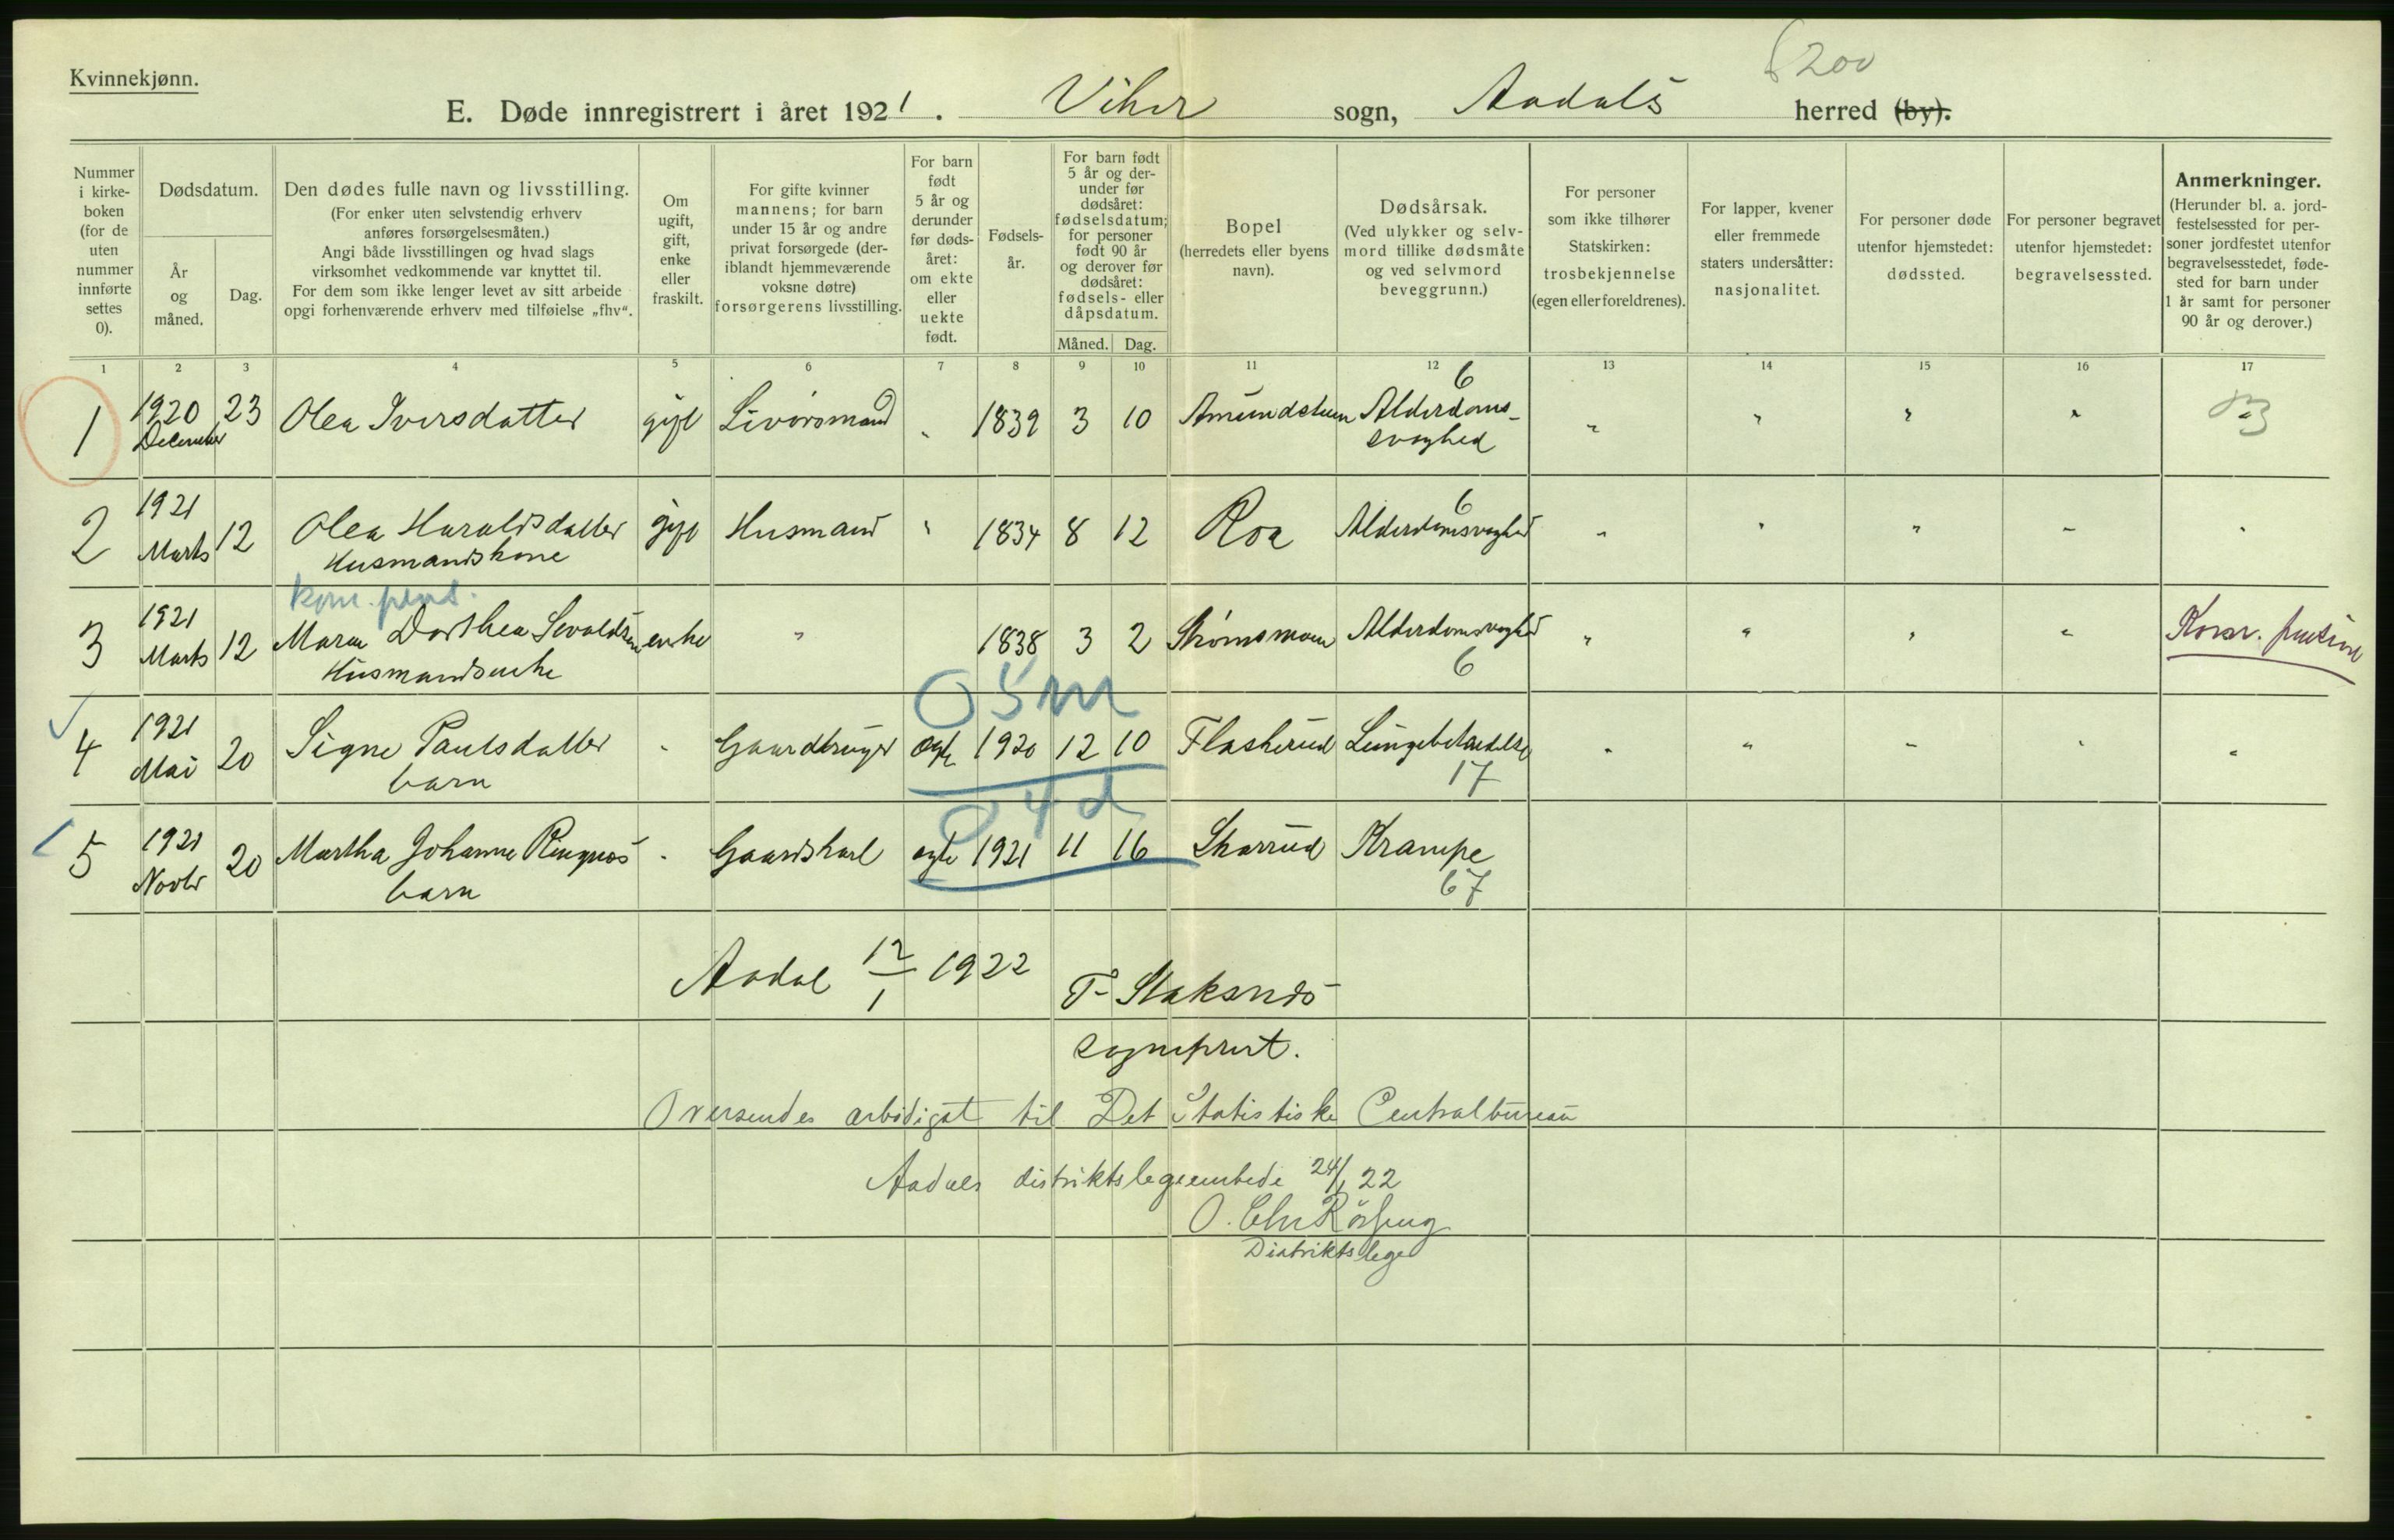 Kvinnekjønn.
6200
E. Døde innregistrert i året 1921. Viker sogn, Aadals herred (by).
Nummer i kirkeboken (for de uten nummer innførte settes 0).
Dødsdatum.
År og måned.
Dag.
Den dødes fulle navn og livsstilling.
(For enker uten selvstendig erhverv anføres forsørgelsesmåten.)
Angi både livsstillingen og hvad slags virksomhet vedkommende var knyttet til.
For dem som ikke lenger levet av sitt arbeide opgi forhenværende erhverv med tilføielse „fhv“.
Om ugift, gift, enke eller fraskilt.
For gifte kvinner mannens; for barn under 15 år og andre privat forsørgede (deriblandt hjemmeværende voksne døtre) forsørgerens livsstilling.
For barn født 5 år og derunder før dødsåret: om ekte eller uekte født.
Fødselsår.
For barn født 5 år og derunder før dødsåret: fødselsdatum; for personer født 90 år og derover før dødsåret: fødsels- eller dåpsdatum.
Måned. Dag.
Bopel (herredets eller byens navn).
Dødsårsak.
(Ved ulykker og selvmord tillike dødsmåte og ved selvmord beveggrunn.)
For personer som ikke tilhører Statskirken: trosbekjennelse (egen eller foreldrenes).
For lapper, kvener eller fremmede staters undersåtter: nasjonalitet.
For personer døde utenfor hjemstedet: dødssted.
For personer begravet utenfor hjemstedet: begravelsessted.
Anmerkninger.
(Herunder bl. a. jordfestelsessted for personer jordfestet utenfor begravelsesstedet, fødested for barn under 1 år samt for personer 90 år og derover.)
1 2 3 4 5 6 7 8 9 10 11 12 13 14 15 16 17
1 1920 December 23 Olea Iversdatter gift Livørsmand " 1839 3 10 Amundstuen Alderdoms-svaghed 6 " " " "
2 1921 Marts 12 Olea Haraldsdatter Husmandskone gift Husmand " 1834 8 12 Roa Alderdomsvaghed 6 " " " " "
kom. pens.
3 1921 Marts 12 Maren Dorthea Sevaldsen Husmandsenke enke " 1838 3 2 Strømsmoen Alderdomsvaghed 6 " " " " Komm. pension
0 5 m
4 1921 Mai 20 Signe Paulsdatter barn " Gaardbruger ægte 1920 12 10 Flaskerud Lungebetændelse 17 " " " " "
0 4 d
5 1921 Novbr 20 Martha Johanne Ringnæs barn " Gaardskarl ægte 1921 11 16 Skarrud Krampe 67
Aadal 12/1 1922 T. Staksnæs
sogneprest.
Oversendes ærbødigst til Det Statistiske Centralbureau
Aadals distriktslegeembede 24/1 22
O. Chr
Distriktslege